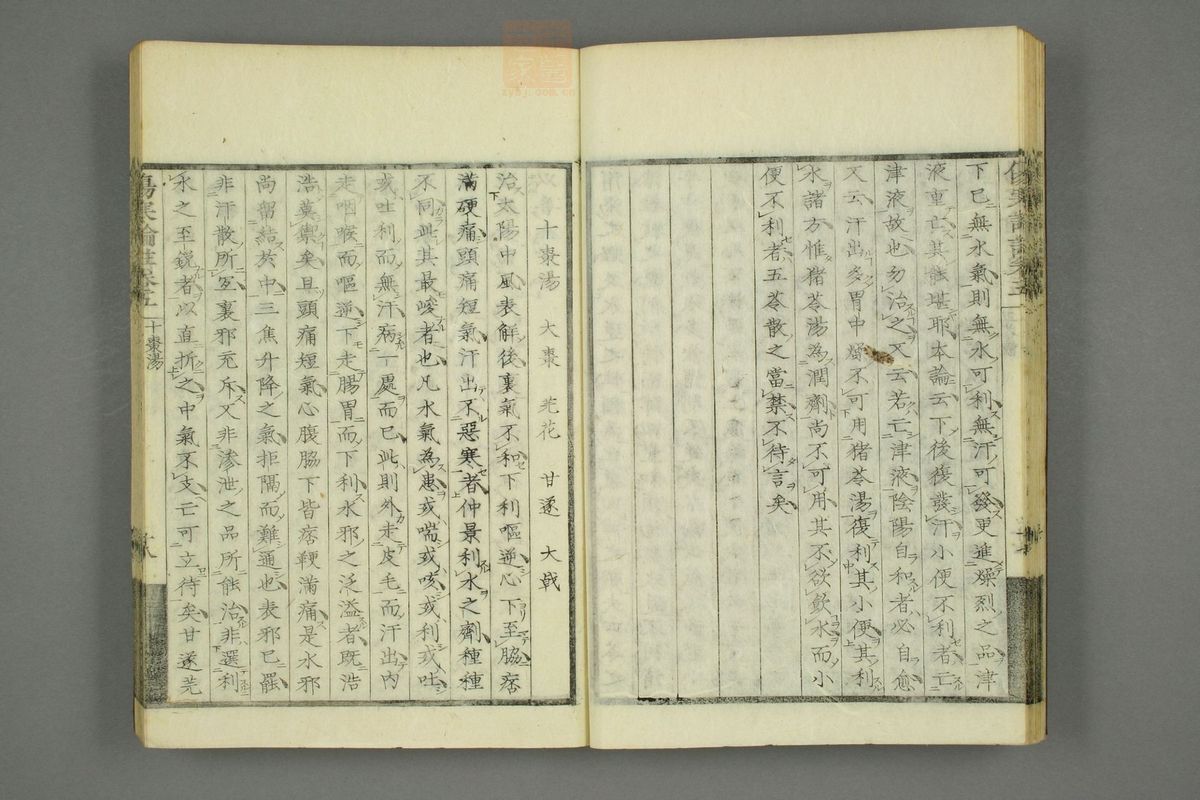 下已無水氣則無水可利無汗可發更進燥烈之品津
液重亡其能堪耶本論云下後復發汗小便不利者亡
津液故也勿治之又云若亡津液陰陽自和者必自愈
又云汗出多胃中燥不可用猪苓湯復利其小便其利
水諸方惟猪苓湯為潤劑尚不可用其不欲飲水而小
便不利者五苓散之當禁不待言矣
十棗湯 大棗 芫花 甘遂 大戟
治太陽中風表解後裏氣不和下利嘔逆心下至脇痞
滿硬痛頭痛短氣汗出不惡寒者仲景利水之劑種種
不同此其最峻者也凡水氣為患或喘或咳或利或吐
或吐利而無汗病一處而已此則外走皮毛而汗出內
走咽喉而嘔逆下走腸胃而下利水邪之泛溢者既浩
浩莫禦矣且頭痛短氣心腹脇下皆痞鞕滿痛是水邪
尚留結於中三焦升降之氣拒隔而難通也表邪已罷
非汗散所宜裏邪充斥又非滲泄之品所能治非選利
水之至銳者以直折之中氣不支亡可立待矣甘遂芫
傷寒論註卷五 十棗湯